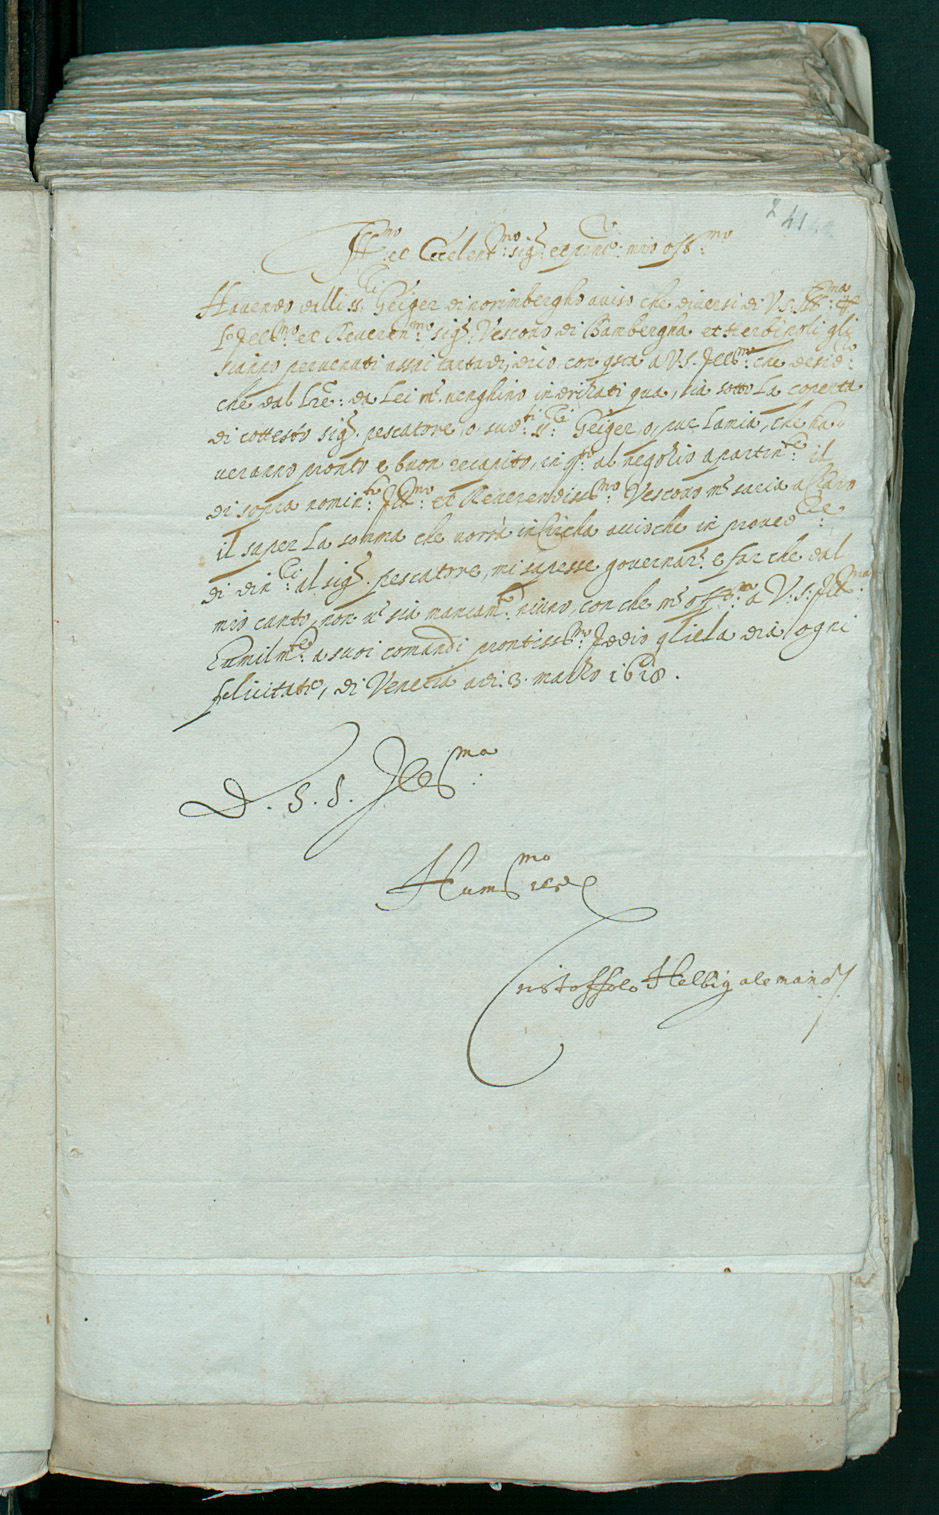 41
Ill.mo et Eccelent.mo sig.r et pat.ne mio oss.mo
Havendo dalli ss.ri Geiger di norimbergho aviso che diversi di V.S. Ill.ma
Ill.mo et Reveren.mo sig.r Vescovo di Bambergha et Herbipoli gli
siano pervenuti assai tardi, dico con q.sta a V.S. Ill.ma che desid.o
che dal lre: da Lei m.r venghino indrizati qua, sia sotto La coperta
di cottesto sig.r pescatore, o, sud.ti ss.ri Geiger, o, pur la mia, che ha
veranno pronto e buon recapito, in q.to al negotio apartin.te il
di sopra nomin.to Ill.mo et Reverendiss.mo Vescovo m.r sacia a Caro
il saper La somma che vorrà in Circha aciòche in proved.re
di din.ri al sig.r pescatore, mi sapesse governar.e e far che dal
mio canto, non vi sia mancam.to niuno, con che m.r offero a V.S. Ill.ma
Humilm.te a suoi comandi prontiss.mo Iddio gliela dia ogni
felicitate, di Venetia adi 3. marzo 1618.
D. S. S. Ill.ma
Hum.mo ser.e
Cristoffolo Helbig alemano